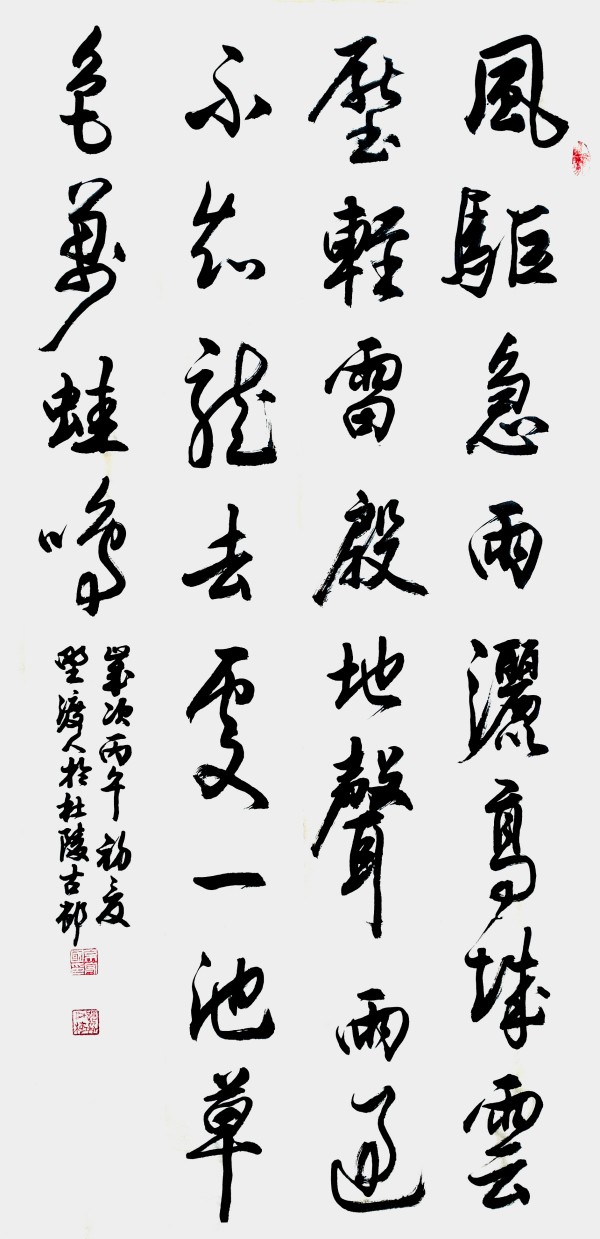 風驅急雨灑高城雲
壓輕雷殷地聲雨過
不知龍去處一池草
色萬蛙鳴
歲次丙午初夏
野渡人於杜陵古都